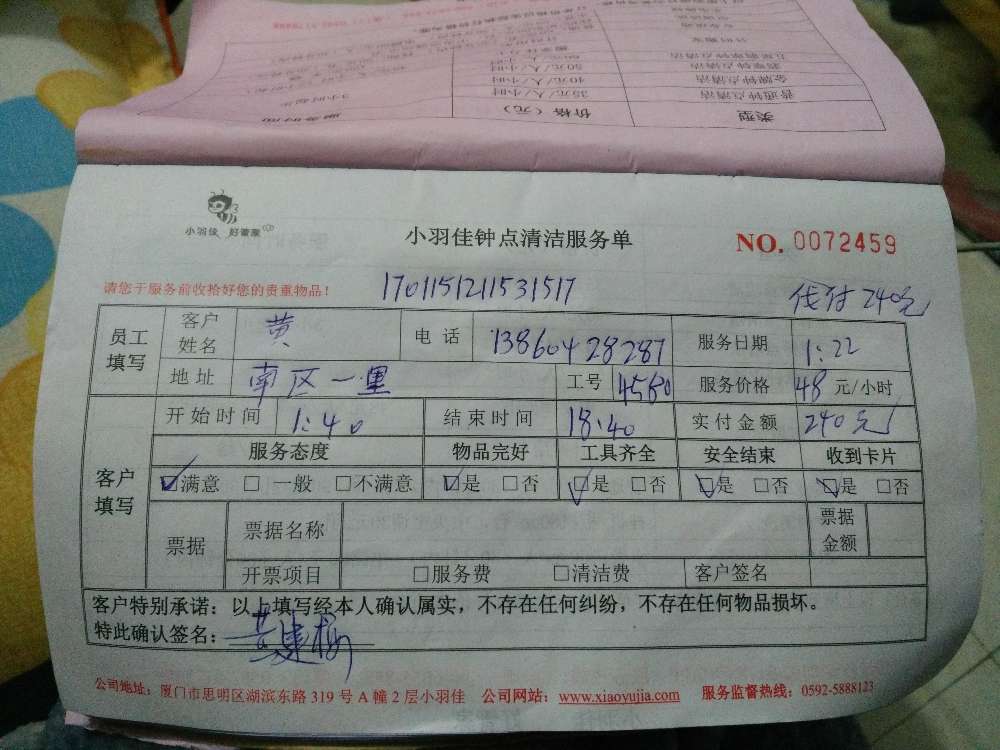 类型
价格（元）
普通钟点清洁
35元/人/小时
3小时起步
金牌钟点清洁
40元/人/小时
50元/人/小时
小羽佳 好管家
小羽佳钟点清洁服务单
NO. 0072459
请您于服务前收拾好您的贵重物品！
1701151211531517
代付240元
员工填写
客户姓名 黄 电话 13860428287 服务日期 1:22
地址 南区一里 工号 4560 服务价格 48 元/小时
客户填写
开始时间 1:40 结束时间 18:40 实付金额 240元
服务态度 物品完好 工具齐全 安全结束 收到卡片
☑满意 □一般 □不满意 ☑是 □否 ☑是 □否 ☑是 □否 ☑是 □否
票据 票据名称 票据金额
开票项目 □服务费 □清洁费 客户签名
客户特别承诺：以上填写经本人确认属实，不存在任何纠纷，不存在任何物品损坏。
特此确认签名：黄建梅
公司地址：厦门市思明区湖滨东路319号A幢2层小羽佳 公司网站：www.xiaoyujia.com 服务监督热线：0592-5888123